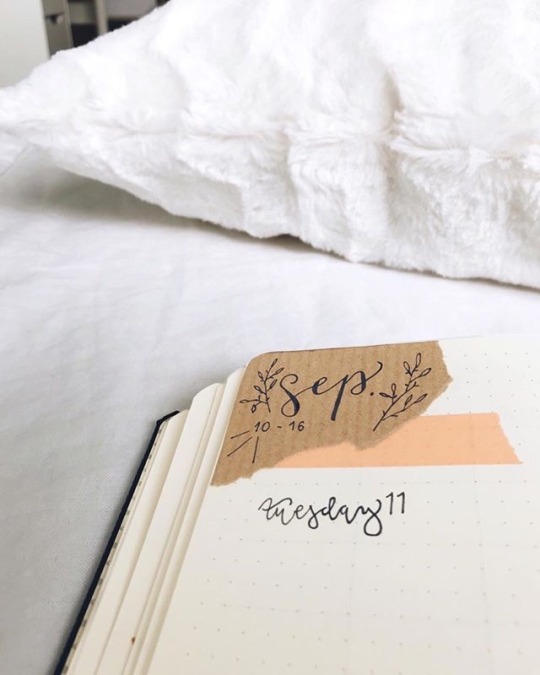 sep.
10 - 16
tuesday 11